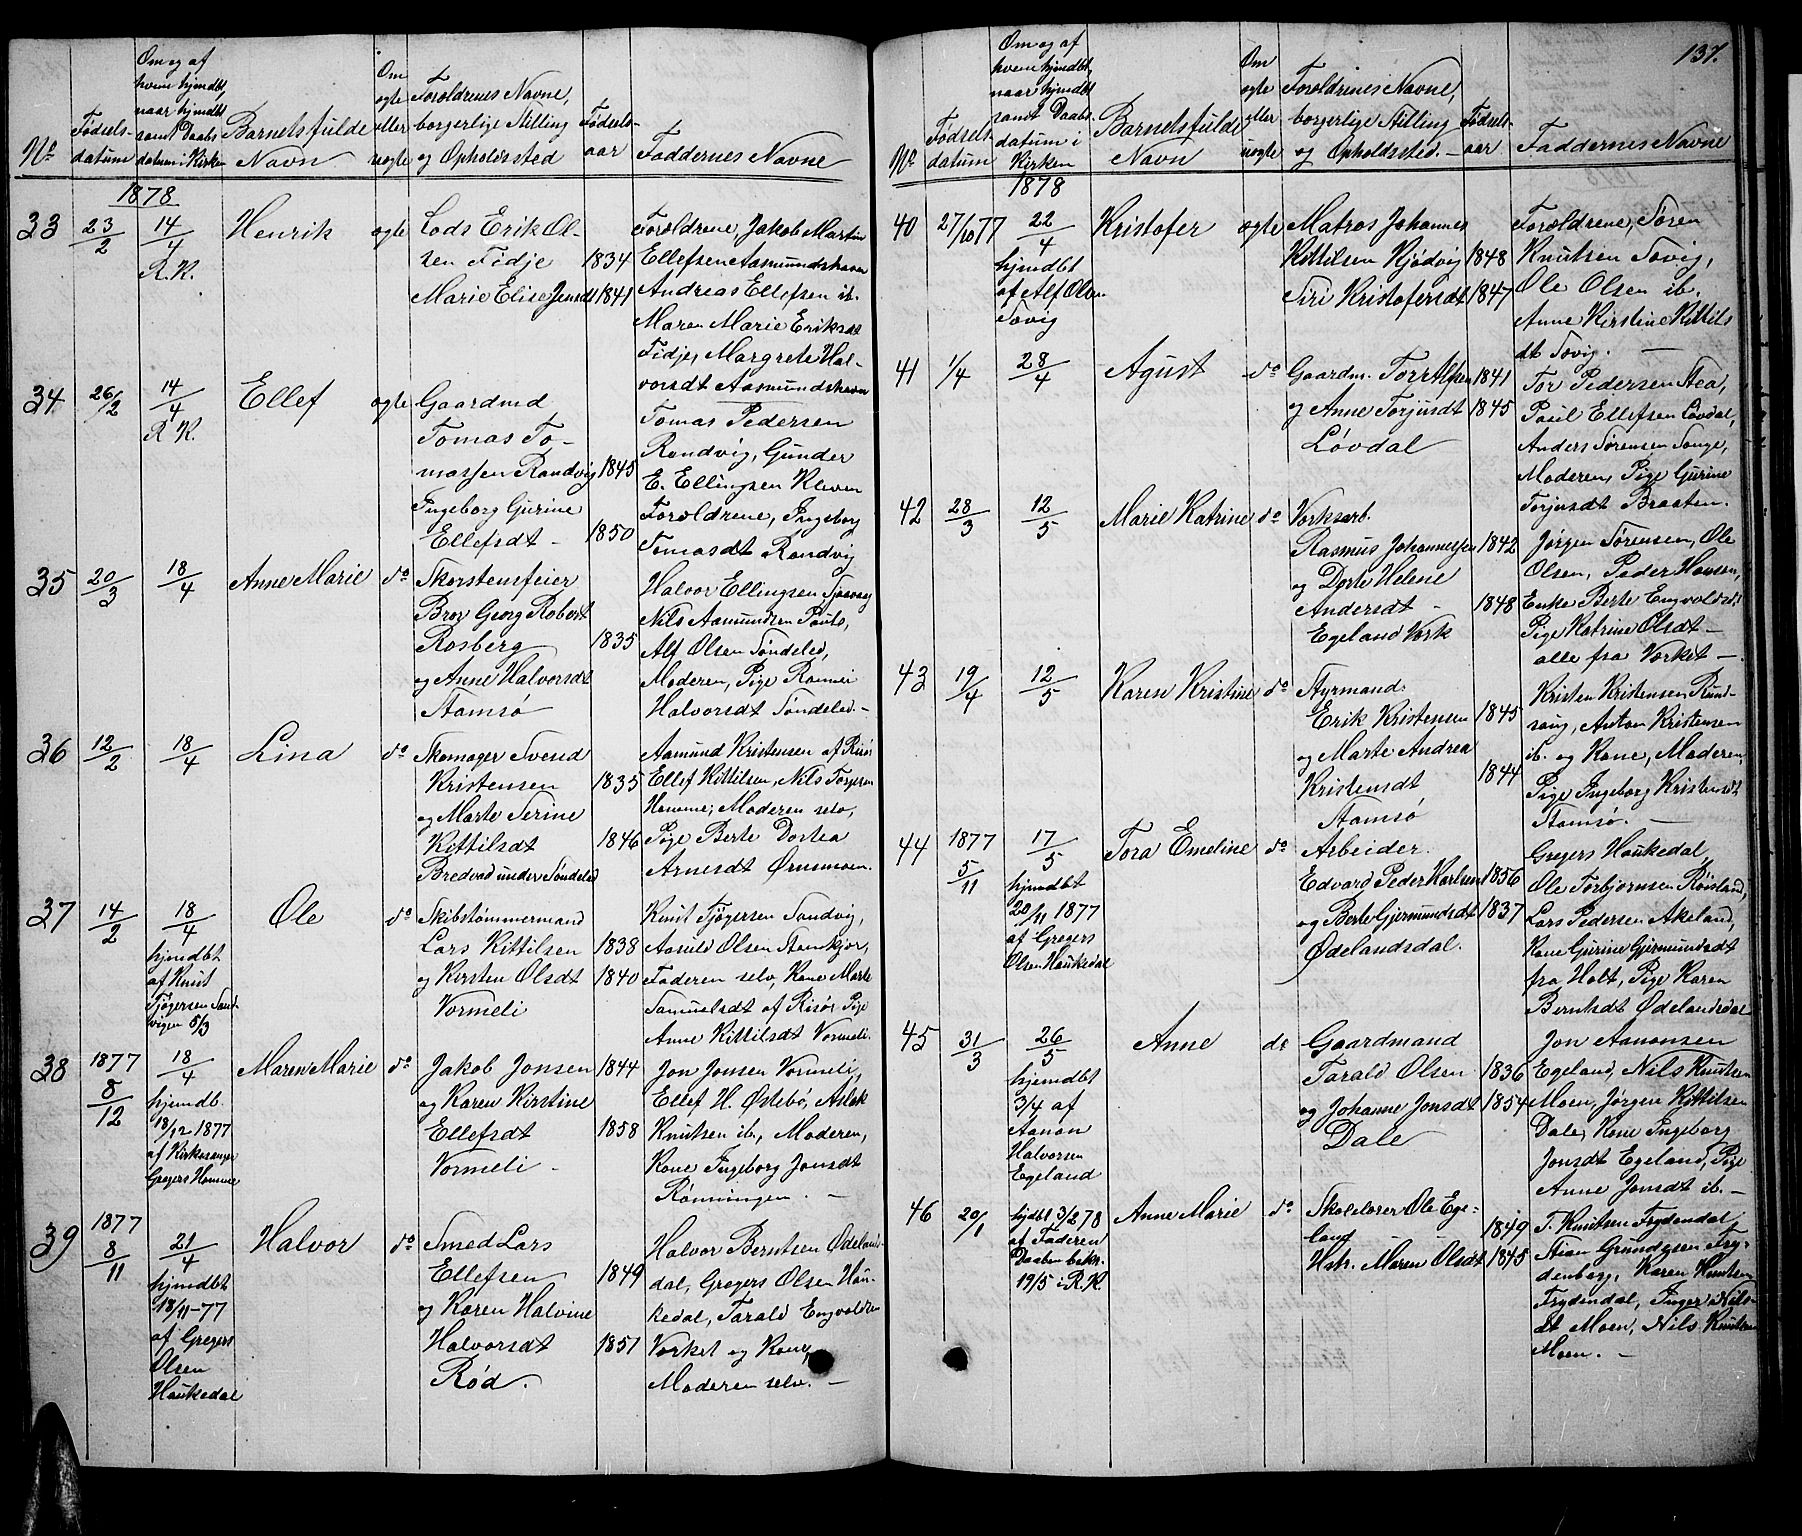 137.
No
Fødsels-
datum
Om og af
hvem hjemdbt,
naar hjemdbt
samt Daabs
datum i Kirken
Barnets fulde
Navn
Om
ægte
eller
uægte
Forældrenes Navne,
borgerlige Stilling
og Opholdssted
Fødsels-
aar
Faddernes Navne
1878
33
23/2
14/4
R.K.
Henrik
ægte
Lods Erik Ol-
sen Fidje 1834
Marie Elise Jensdt 1841
Forældrene, Jakob Martin
Ellefsen Aasmundshavn
Andreas Ellefsen ib.
Maren Marie Eriksdt
Fidje, Margrete Hal-
vorsdt Aasmundshavn
34
26/2
14/4
R.K.
Ellef
ægte
Gaardmd
Tomas To-
massen Randvig 1845
Ingeborg Gurine
Ellefsdt - 1850
Tomas Pedersen
Randvig, Gunder
E. Ellingsen Kleven
Forældrene, Ingeborg
Tomasdt Randvig
35
20/3
18/4
Anne Marie
do
Skorstensfeier
Bror Georg Robert
Rosberg 1835
og Anne Halvorsdt
Stamsø
Halvor Ellingsen
Nils Aamundsen
Alf Olsen Søndeled,
Moderen, Pige Ronnei
Halvorsdt Søndeled. -
36
12/2
18/4
Lina
do
Skomager Svend
Kristensen 1835
og Marte Serine
Kittilsdt 1846
Bredvad under Søndeled
Aamund Kristensen af Risør
Ellef Kittilsen, Nils Torgersen
Hamme; Moderen selv,
Pige Berte Dortea
Arnesdt Ørnsmoen.
37
14/2
18/4
hjemdbt
af Knut
Tjøgersen Sand-
vigen 5/3
Ole
do
Skibstømmermand
Lars Kittilsen 1838
og Kirsten Olsdt 1840
Vormeli
Knut Tjøgersen Sandvig,
Aasuld Olsen
Faderen selv, Kone Marte
Samuelsdt af Risør, Pige
Anne Kittilsdt Vormeli.
38
1877
8/12
18/4
hjemdb.
18/12 1877
af Kirkesanger
Gregers Hamme
Maren Marie
do
Jakob Jonsen 1844
og Karen Kirstine
Ellefsdt 1858
Vormeli -
Jon Jonsen Vormeli,
Ellef H. Østebø, Aslak
Knutsen ib., Moderen,
Kone Ingeborg Jonsdt
Rønningen. -
39
1877
8/11
21/4
hjemdbt
18/11-77
af Gregers
Olsen
Haukedal
Halvor
do
Smed Lars
Ellefsen 1849
og Karen Halvine
Halvorsdt 1851
Rød.
Halvor Berntsen Ødelands-
dal, Gregers Olsen Hau-
kedal, Tarald Engvoldsen
Værket og Kone,
Moderen selv. -
No
Fødsels-
datum
Om og af
hvem hjemdbt,
naar hjemdbt
samt Daabs
datum i
Kirken
Barnets fulde
Navn
Om
ægte
eller
uægte
Forældrenes Navne,
borgerlige Stilling
og Opholdssted. -
Fødsels-
aar
Faddernes Navne
1878
40
27/10 77
22/4
hjemdbt
af Alf Olsen
Søvig
Kristofer
ægte
Matros Johannes
Kittilsen Kjødvig 1848
Siri Kristofersdt 1847
Forældrene, Søren
Knutsen Søvig,
Ole Olsen ib.
Anne Kirstine Kittils
dt Søvig. -
41
1/4
28/4
Agust
do
Gaardm. Tor Alfsen 1841
og Anne Torjusdt 1845
Løvdal
Tor Pedersen Stea,
Paul Ellefsen Løvdal,
Anders Sørensen Songe,
Moderen, Pige Gurine
Torjusdt Braaten.
42
28/3
12/5
Marie Katrine
do
Værksarb.
Rasmus Johannesen 1842
og Dorte Helene
Andersdt - 1848
Egeland Værk
Jørgen Sørensen, Ole
Olsen, Peder Hansen,
Enke Berte Engvoldsdt
Pige Katrine Olsdt -
alle fra Værket -
43
19/4
12/5
Karen Kristine
do
Styrmand.
Erik Kristensen 1845
og Marte Andrea
Kristensdt 1844
Stamsø
Kristen Kristensen Rund-
saug, Anton Kristensen
ib. og Kone, Moderen,
Pige Ingeborg Kristensdt
Stamsø. -
44
1877
5/11
17/5
hjemdbt
20/11 1877
af Gregers
Olsen Haukedal
Tora Emeline
do
Arbeider.
Edvard Peder Karlsen 1856
og Berte Gjermundsdt 1837
Ødelandsdal.
Gregers Haukedal,
Ole Torbjørnsen Røisland,
Lars Pedersen Akeland,
Kone Gurine Gjermundsdt
fra Holt, Pige Karen
Berntsdt Ødelandsdal
45
31/3
26/5
hjemdbt
3/4 af
Aanon
Halvorsen
Egeland
Anne
do
Gaardmand
Tarald Olsen 1836
og Johanne Jonsdt 1854
Dale
Jon Aanonsen
Egeland, Nils Knutsen
Moen, Jørgen Kittilsen
Dale, Kone Ingeborg
Jonsdt Egeland, Pige
Anne Jonsdt ib. -
46
20/1
hjdbt 3/2 78
af Faderen
Daaben bekr.
19/5 i R.K.
Anne Marie
do
Skolelærer Ole Ege-
land 1849
Hstr. Maren Olsdt 1845
T. Knutsen Frydendal,
Stian Gundersen Fry-
denborg, Karen Knutsen
Frydendal, Inger Nils-
dt Moen, Nils Knutsen
Moen. -